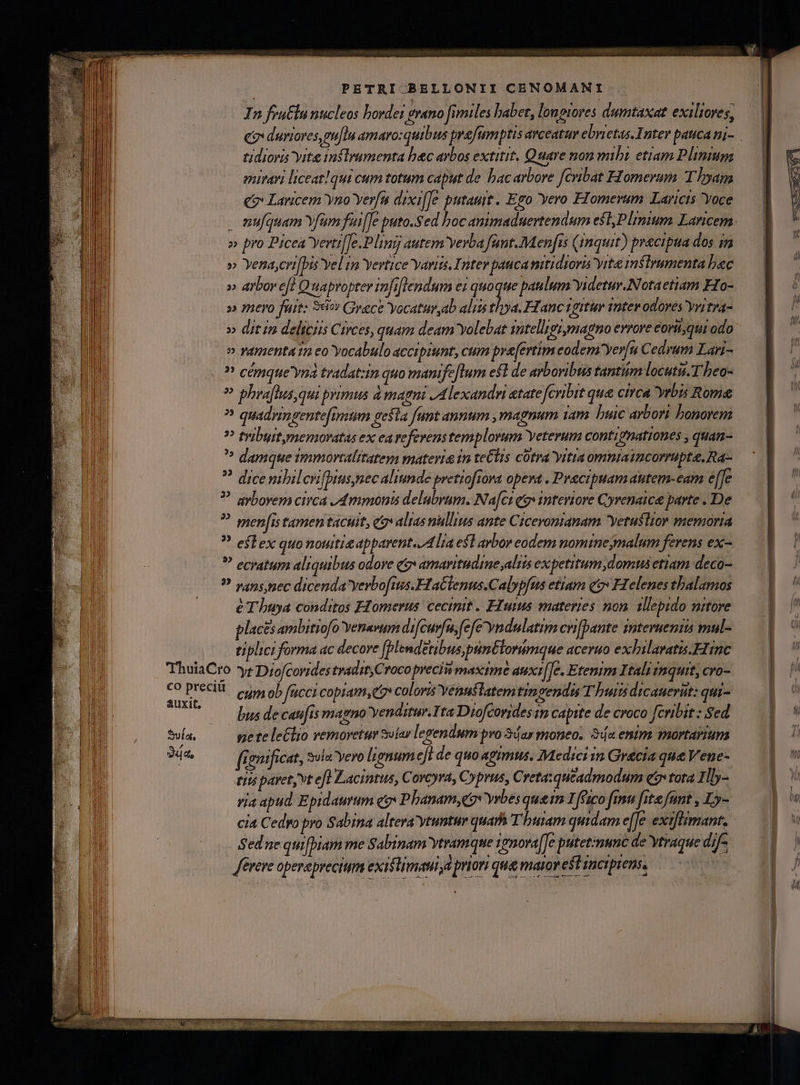 PETRI BELLONII CENOMANI
In fructu nucleos hordei grano similes habet, longiores dumtaxat exiliores,
& duriores, gustu amaro: quibus præsumptis arceatur ebrietas. Inter pauca ni-
tidioris vitæ instrumenta hæc arbos extitit. Quare non mihi etiam Plinium
mirari liceat! qui cum totum caput de hac arbore scribat Homerum Thyam
& Laricem vno versu dixisse putauit. Ego vero Homerum Laricis voce
nusquam vsum fuisse puto. Sed hoc animaduertendum est, Plinium Laricem
» pro Picea vertisse. Plinij autem verba sunt. Mensis (inquit) præcipua dos in
» vena, crispis vel in vertice variis. Inter pauca nitidioris vitæ instrumenta hæc
» arbor est Quapropter insistendum ei quoque paulum videtur. Nota etiam Ho-
» mero fuit: θύον Græce vocatur, ab aliis thya. Hanc igitur inter odores vri tra-
» dit in deliciis Circes, quam deam volebat intelligi, magno errore eorū, qui odo
» ramenta in eo vocabulo accipiunt, cum præsertim eodem versu Cedrum Lari-
» cémque vnà tradat: in quo manifestum est de arboribus tantùm locutū. Theo-
» phrastus, qui primus à magni Alexandri ætate scribit quæ circa vrbis Romæ
» quadringentesimum gesta sunt annum, magnum iam huic arbori honorem
» tribuit, memoratas ex ea referens templorum veterum contignationes, quan-
» damque immortalitatem materiæ in tectis cōtra vitia omnia incorruptæ. Ra-
» dice nihil crispius, nec aliunde pretiosiora opera. Præcipuam autem eam esse
» arborem circa Ammonis delubrum. Nasci & interiore Cyrenaicæ parte. De
» mensis tamen tacuit, & alias nullius ante Ciceronianam vetustior memoria
» est ex quo nouitiæ apparent. Alia est arbor eodem nomine, malum ferens ex-
» ecratum aliquibus odore & amaritudine, aliis expetitum, domus etiam deco-
» rans, nec dicenda verbosius. Hactenus. Calypsus etiam & Helenes thalamos
è Thuya conditos Homerus cecinit. Huius materies non illepido nitore
placēs ambitioso venarum discursu, sese vndulatim crispante interueniis mul-
tiplici forma ac decore splendētibus, punctorúmque aceruo exhilaratis. Hinc
ThuiaCro vt Dioscorides tradit, Croco preciū maxime auxisse. Etenim Itali inquit, cro-
co preciū cum ob succi copiam, & coloris venustatem tingendis Thuiis dicauerūt: qui-
auxit. bus de causis magno venditur. Ita Dioscorides in capite de croco scribit: Sed
θυΐα, ne te lectio remoretur θυΐαν legendum pro θύαν moneo. θύα enim mortarium
θύα, significat, θυΐα vero lignum est de quo agimus. Medici in Græcia quæ Vene-
tiis paret, vt est Zacintus, Corcyra, Cyprus, Creta: quēadmodum & tota Illy-
ria apud Epidaurum & Phanam, & vrbes quæ in Issico sinu sitæ sunt, Ly-
cia Cedro pro Sabina altera vtuntur quam Thuiam quidam esse existimant.
Sed ne quispiam me Sabinam vtramque ignorasse putet: nunc de vtraque dis-
serere operæprecium existimaui, à priori quæ maior est incipiens.